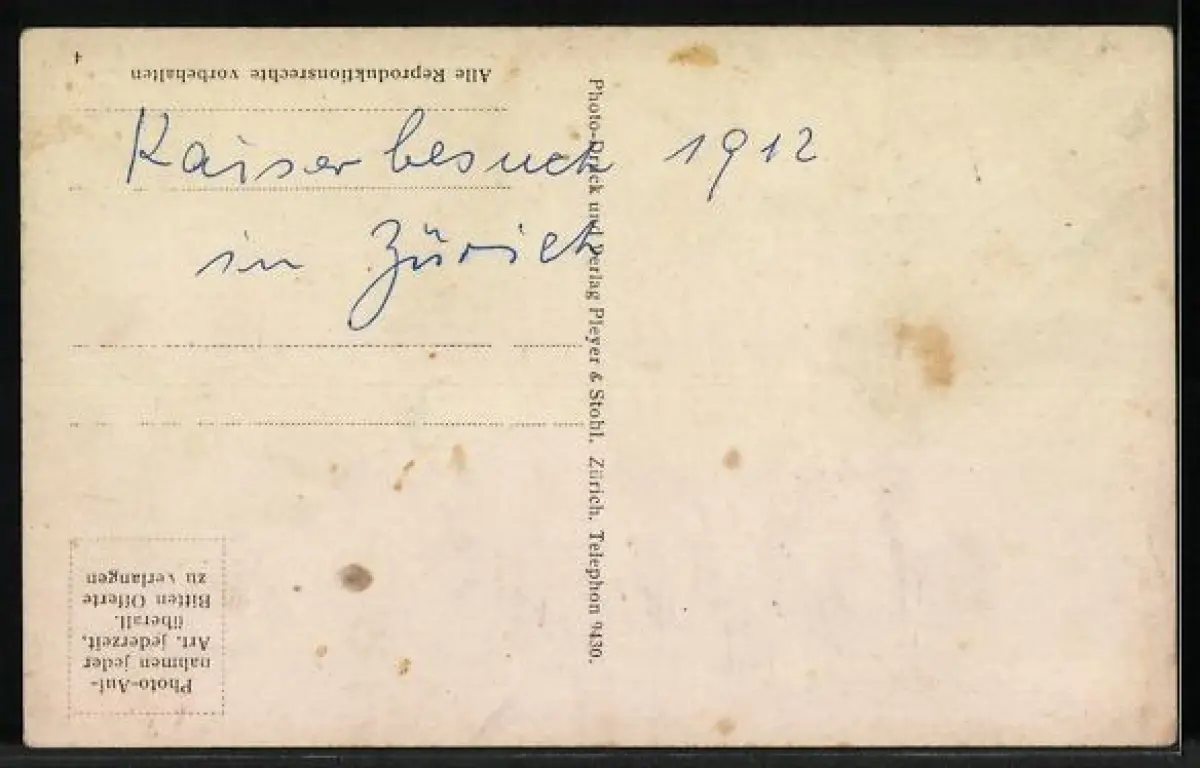 4
Alle Reproduktionsrechte vorbehalten
Kaiserbesuch 1912
in Zürich
Photo-Druck und Verlag Pleyer & Stohl, Zürich, Telephon 9430.
Photo-Auf-
nahmen jeder
Art, jederzeit,
überall.
Bitten Offerte
zu verlangen